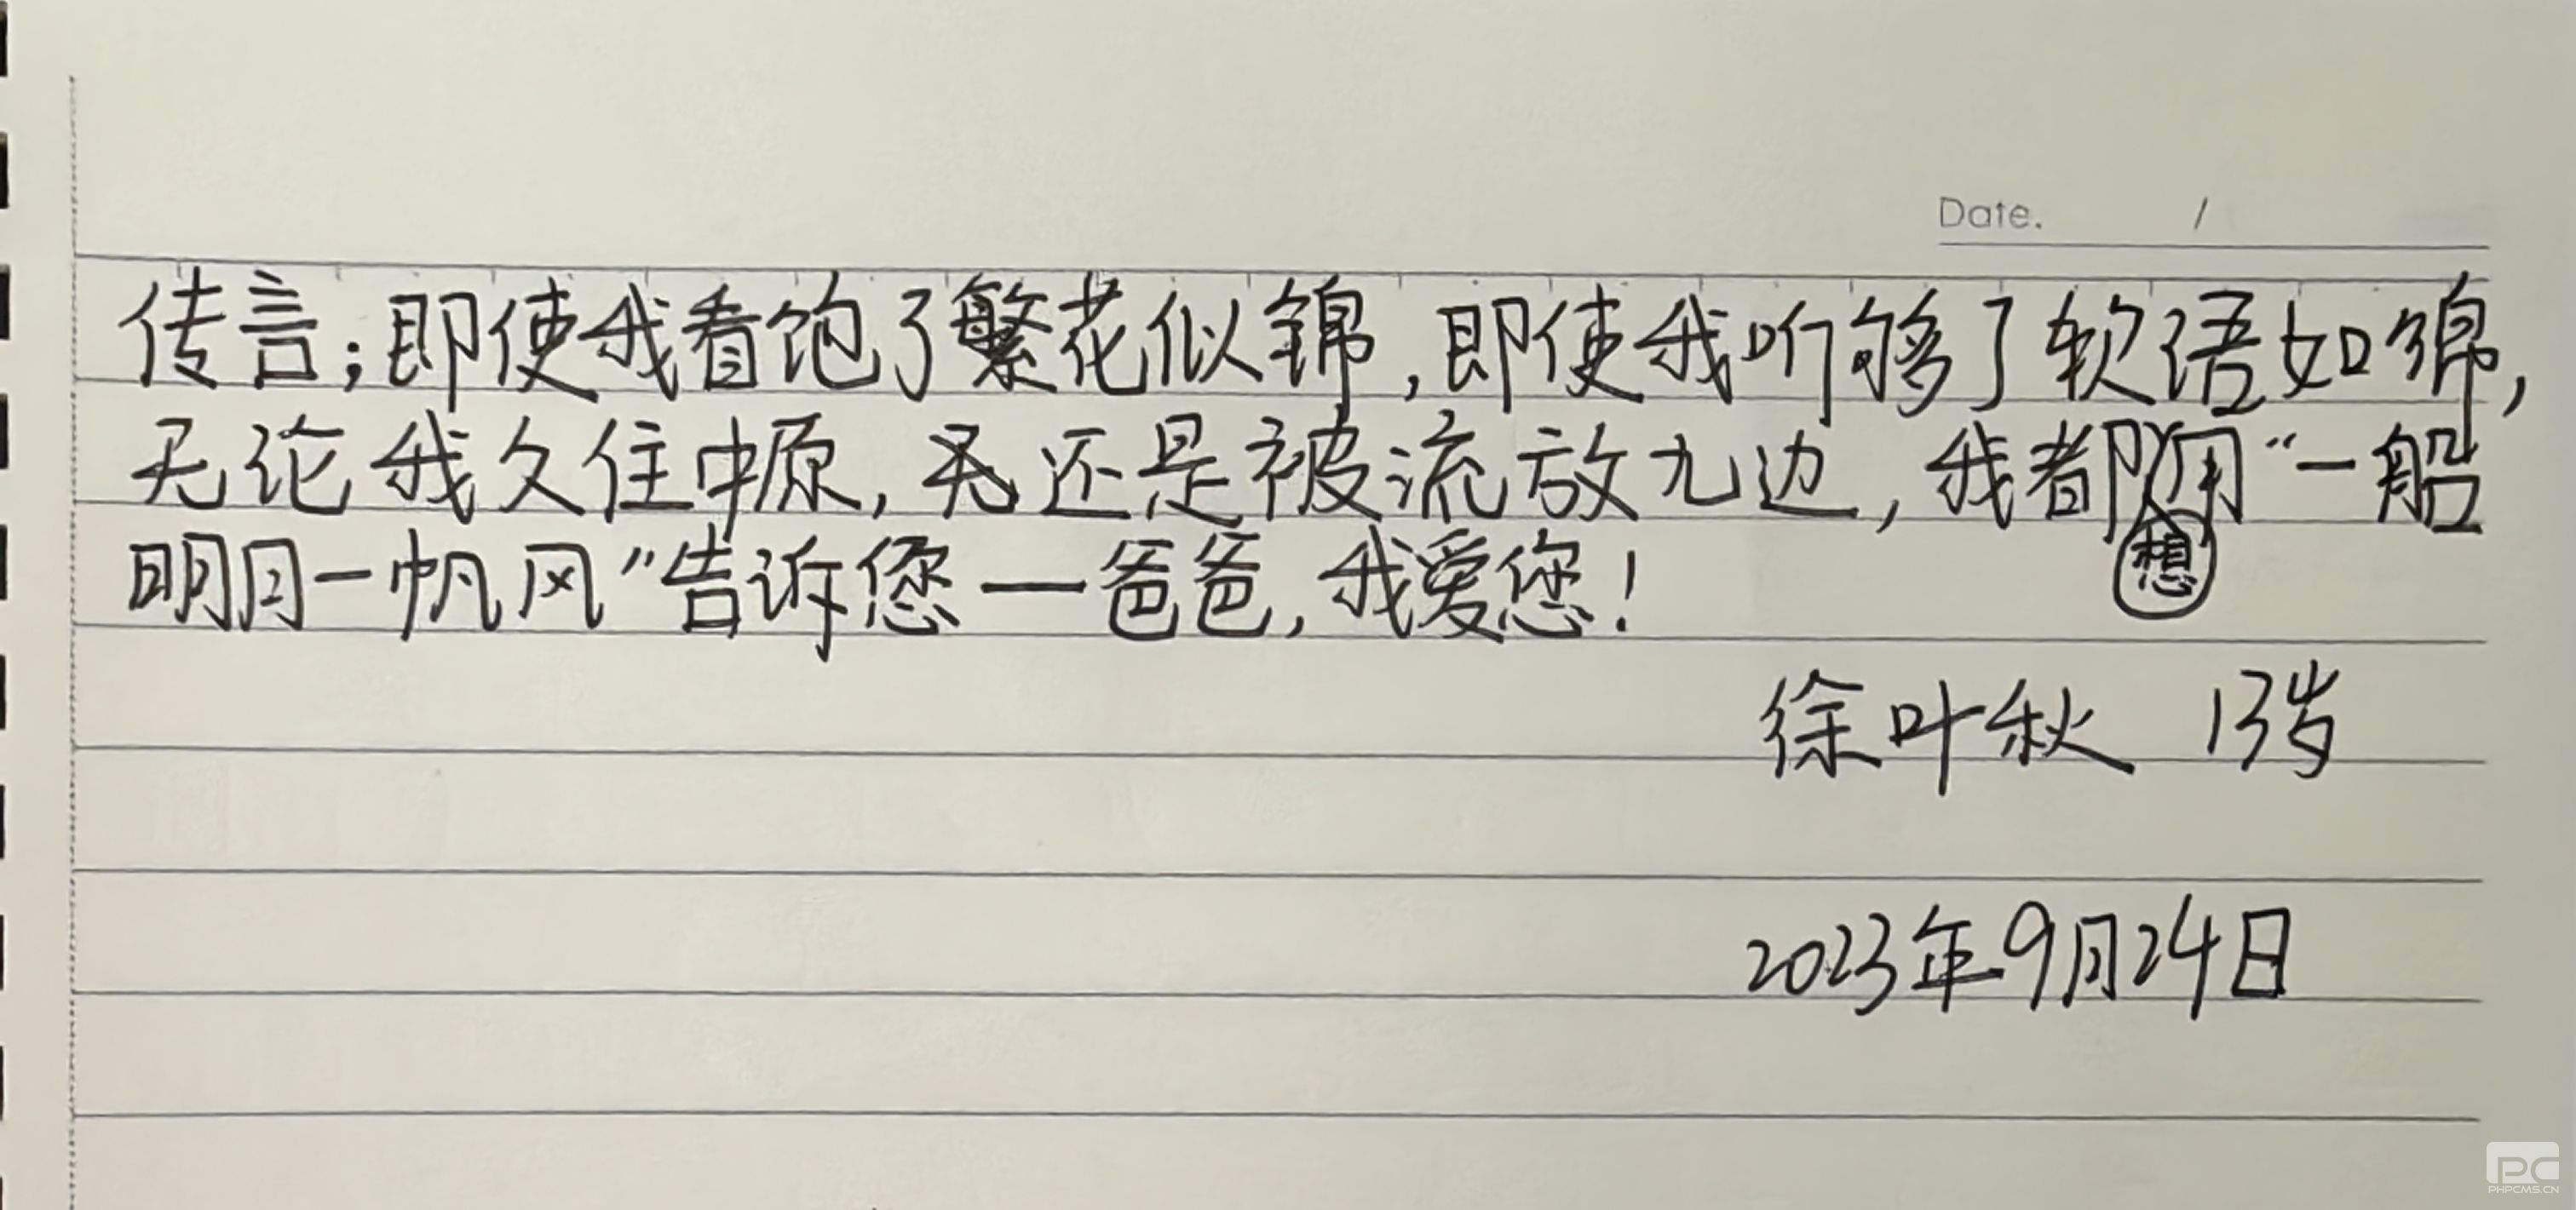 Date. /
传言；即使我看饱了繁花似锦，即使我听够了软语如绵，
无论我久住中原，还是被流放九边，我都想用“一船
明月一帆风”告诉您——爸爸，我爱您！
徐叶秋 13岁
2023年9月24日
PC
PHPCMS.CN